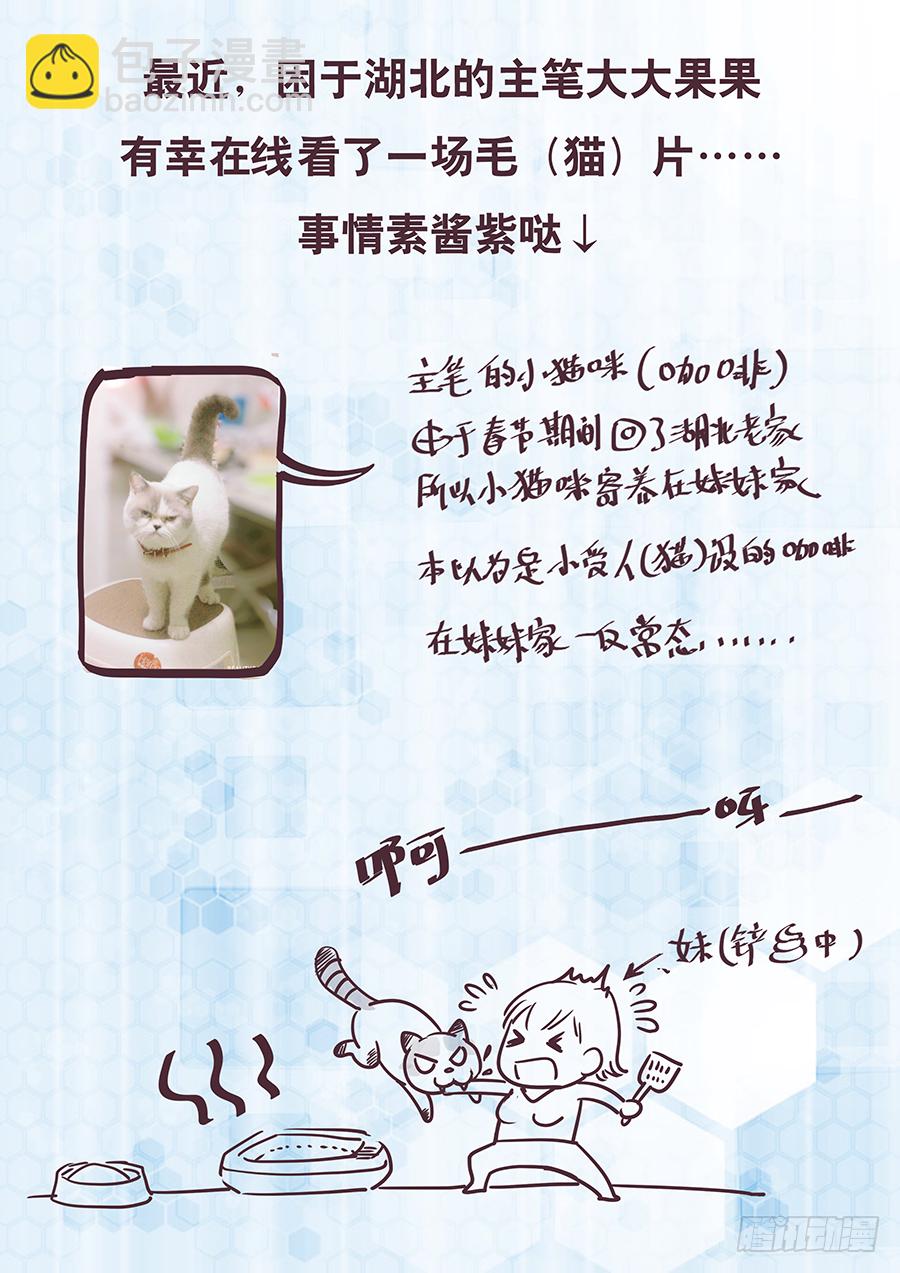 包子漫畫
baozimh.com
最近，困于湖北的主笔大大果果
有幸在线看了一场毛（猫）片……
事情素酱紫哒↓
主笔的小猫咪(咖啡)
由于春节期间回了湖北老家
所以小猫咪寄养在妹妹家
本以为是小受人(猫)设的咖啡
在妹妹家一反常态.......
啊——呀—
妹(铲屎中)
腾讯动漫